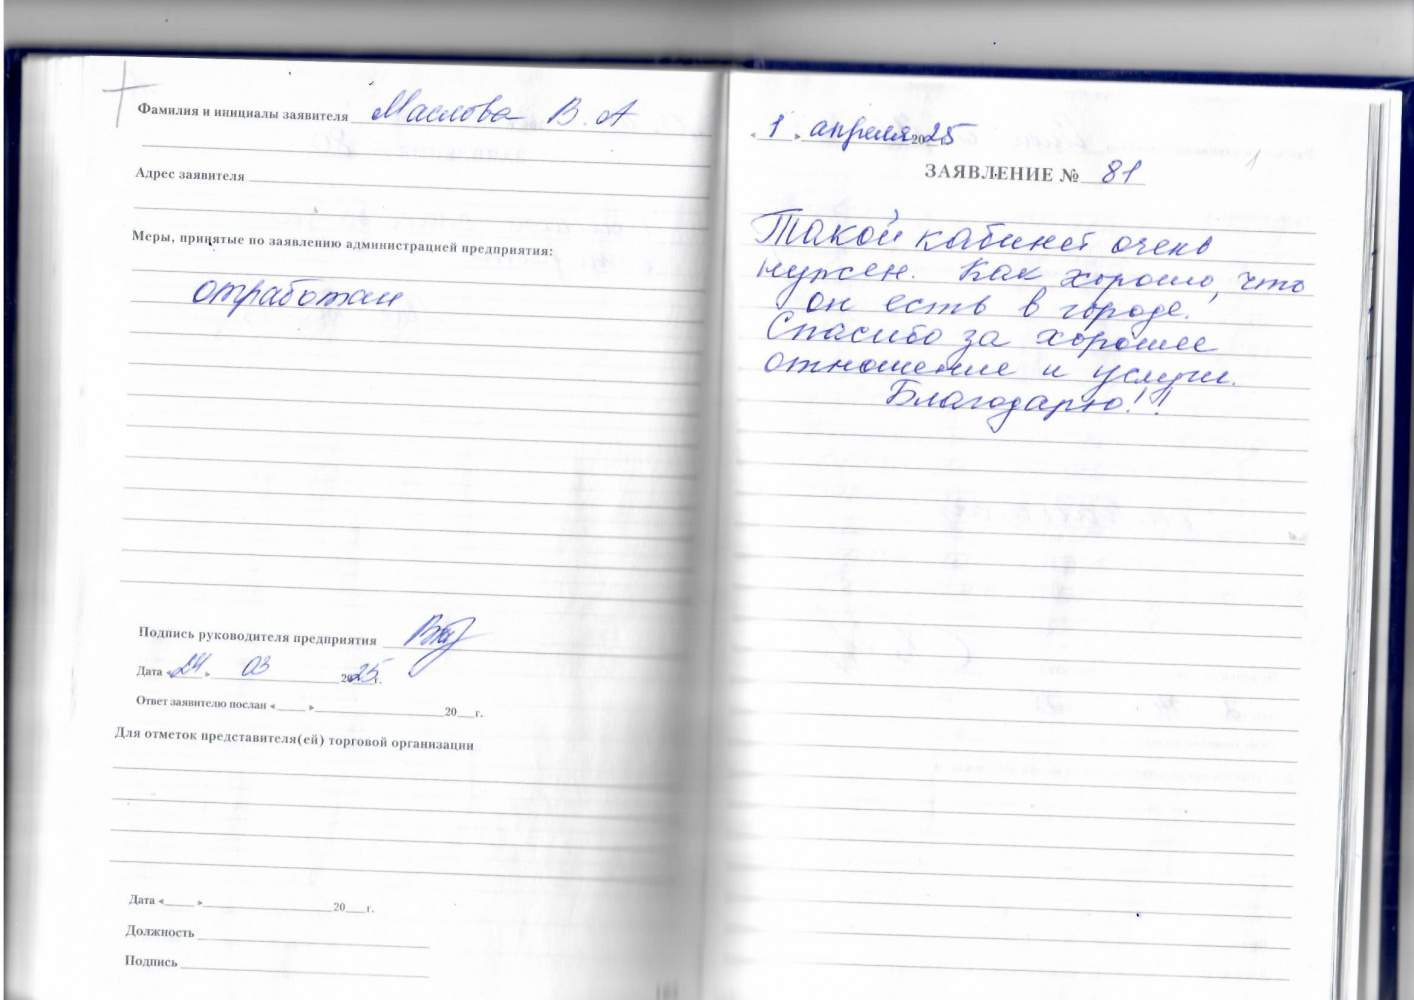 Фамилия и инициалы заявителя Маслова В. А
Адрес заявителя
Меры, принятые по заявлению администрацией предприятия:
отработан
Подпись руководителя предприятия
Дата «24» 03 2025г.
Ответ заявителю послан «____» ____ 20__г.
Для отметок представителя(ей) торговой организации
Дата «____» ____ 20__г.
Должность
Подпись
«1» апреля 2025
ЗАЯВЛЕНИЕ № 81
Такой кабинет очень
нужен. Как хорошо, что
он есть в городе.
Спасибо за хорошее
отношение и услуги.
Благодарю!!